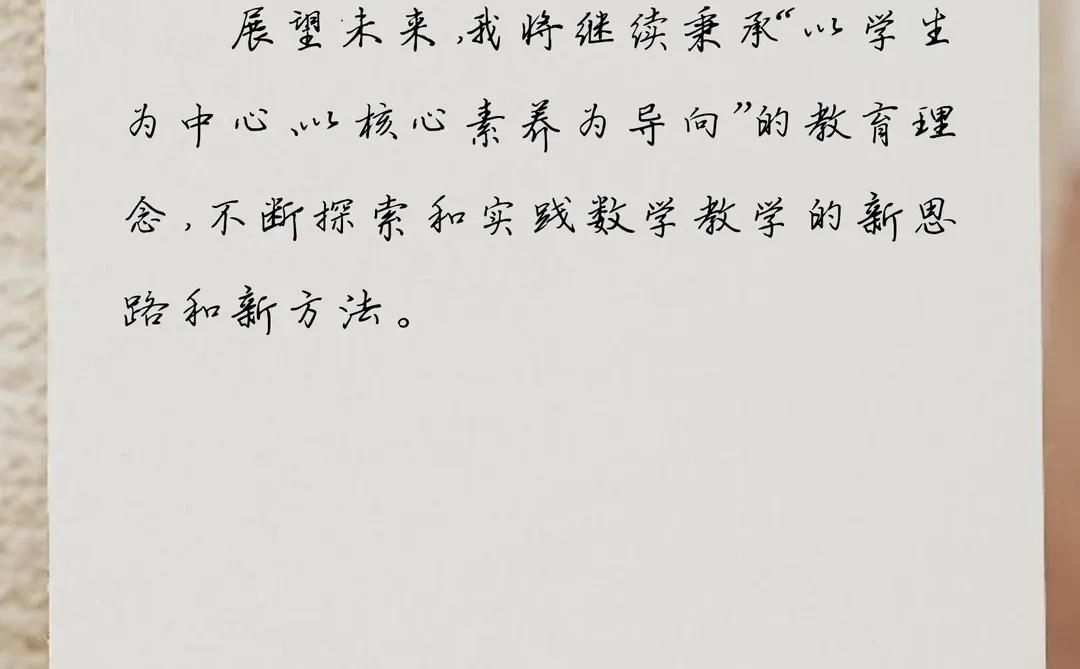 展望未来,我将继续秉承“以学生
为中心、以核心素养为导向”的教育理
念,不断探索和实践数学教学的新思
路和新方法。